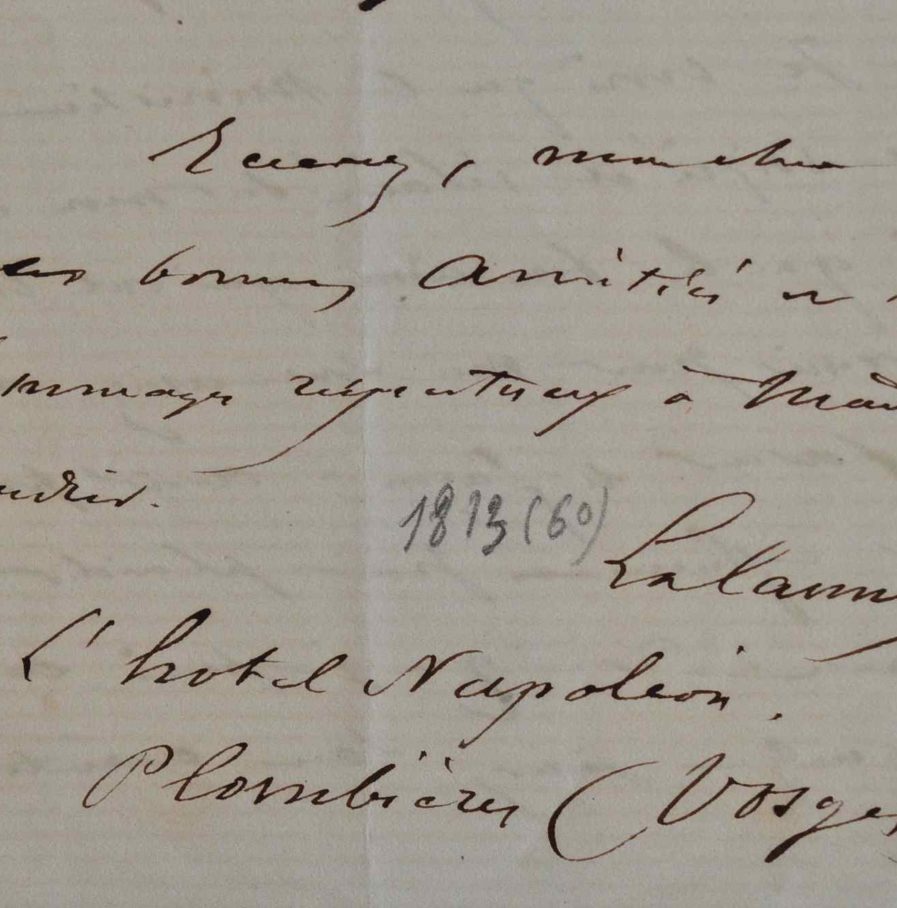 Recevez, mon cher
bonnes amitiés et
respectueux à
1813 (60)
Lalanne
L'hotel Napoléon.
Plombières (Vosges